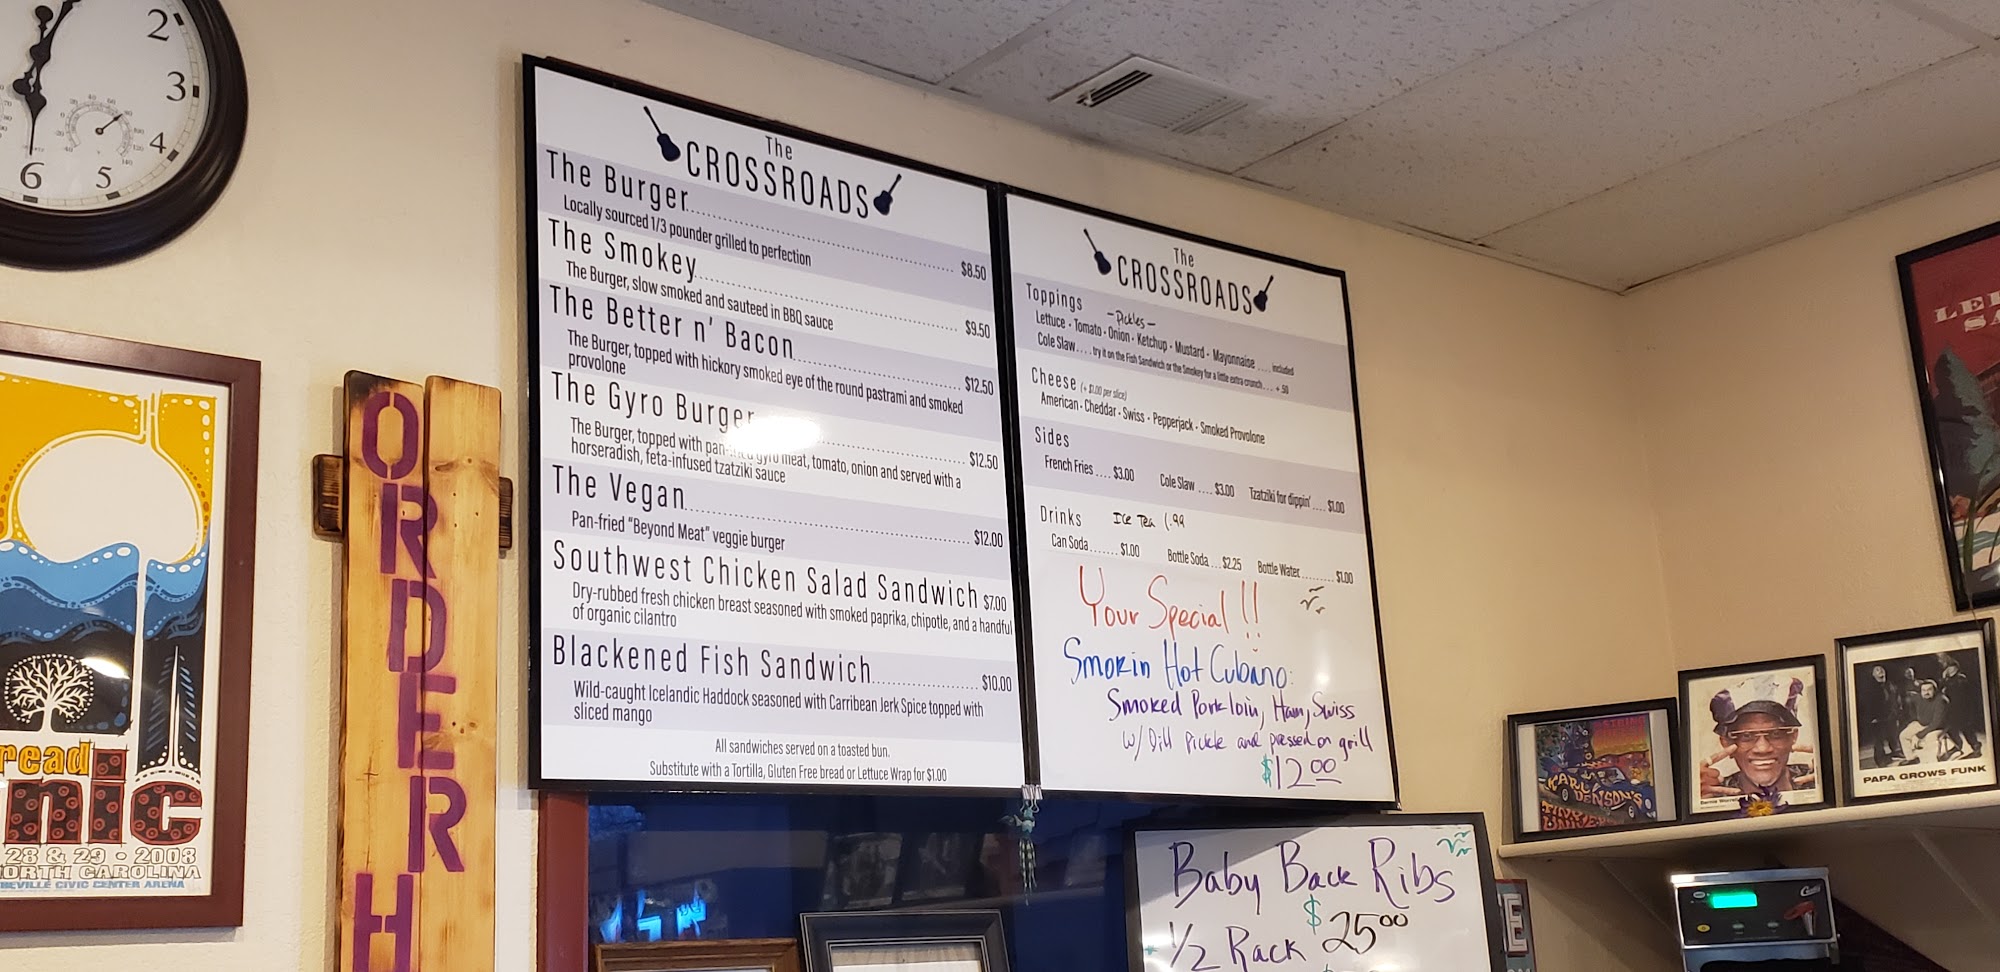 2
3
4
5
6
The
CROSSROADS
The Burger $8.50
Locally sourced 1/3 pounder grilled to perfection
The Smokey $9.50
The Burger, slow smoked and sauteed in BBQ sauce
The Better n' Bacon $12.50
The Burger, topped with hickory smoked eye of the round pastrami and smoked
provolone
The Gyro Burger $12.50
The Burger, topped with gyro meat, tomato, onion and served with a
horseradish, feta-infused tzatziki sauce
The Vegan $12.00
Pan-fried "Beyond Meat" veggie burger
Southwest Chicken Salad Sandwich $7.00
Dry-rubbed fresh chicken breast seasoned with smoked paprika, chipotle, and a handful
of organic cilantro
Blackened Fish Sandwich $10.00
Wild-caught Icelandic Haddock seasoned with Carribean Jerk Spice topped with
sliced mango
All sandwiches served on a toasted bun.
Substitute with a Tortilla, Gluten Free bread or Lettuce Wrap for $1.00
The
CROSSROADS
Toppings -Pickles-
Lettuce - Tomato - Onion - Ketchup - Mustard - Mayonnaise .... included
Cole Slaw .... try it on the Fish Sandwich or the Smokey for a little extra crunch .... + .50
Cheese (+ $1.00 per slice)
American - Cheddar - Swiss - Pepperjack - Smoked Provolone
Sides
French Fries .... $3.00 Cole Slaw .... $3.00 Tzatziki for dippin' .... $1.00
Drinks Ice Tea 1.99
Can Soda ....... $1.00 Bottle Soda ... $2.25 Bottle Water ......... $1.00
Your Special!!
Smokin Hot Cubano:
Smoked Pork loin, Ham, Swiss
w/ Dill Pickle and pressed on grill
$12.00
Baby Back Ribs
1/2 Rack $25.00
ORDER H
read
nic
28 & 29 • 2008
NORTH CAROLINA
EVILLE CIVIC CENTER ARENA
KARL DENSON'S
TINY
UNIVERSE
PAPA GROWS FUNK
LE
SA
E